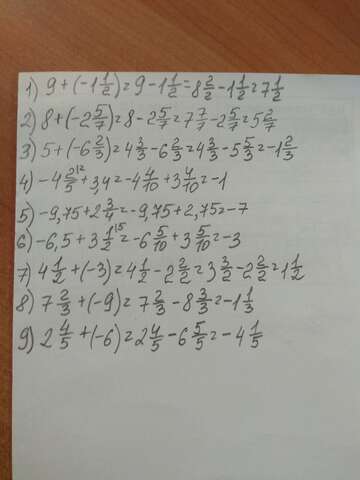 1) 9 + (-1 1/2) = 9 - 1 1/2 = 8 2/2 - 1 1/2 = 7 1/2
2) 8 + (-2 5/7) = 8 - 2 5/7 = 7 7/7 - 2 5/7 = 5 2/7
3) 5 + (-6 2/3) = 4 3/3 - 6 2/3 = 4 3/3 - 5 5/3 = -1 2/3
4) -4 2/5 + 3,4 = -4 4/10 + 3 4/10 = -1
5) -9,75 + 2 3/4 = -9,75 + 2,75 = -7
6) -6,5 + 3 1/2 = -6 5/10 + 3 5/10 = -3
7) 4 1/2 + (-3) = 4 1/2 - 2 2/2 = 3 3/2 - 2 2/2 = 1 1/2
8) 7 2/3 + (-9) = 7 2/3 - 8 3/3 = -1 1/3
9) 2 4/5 + (-6) = 2 4/5 - 6 5/5 = -4 1/5